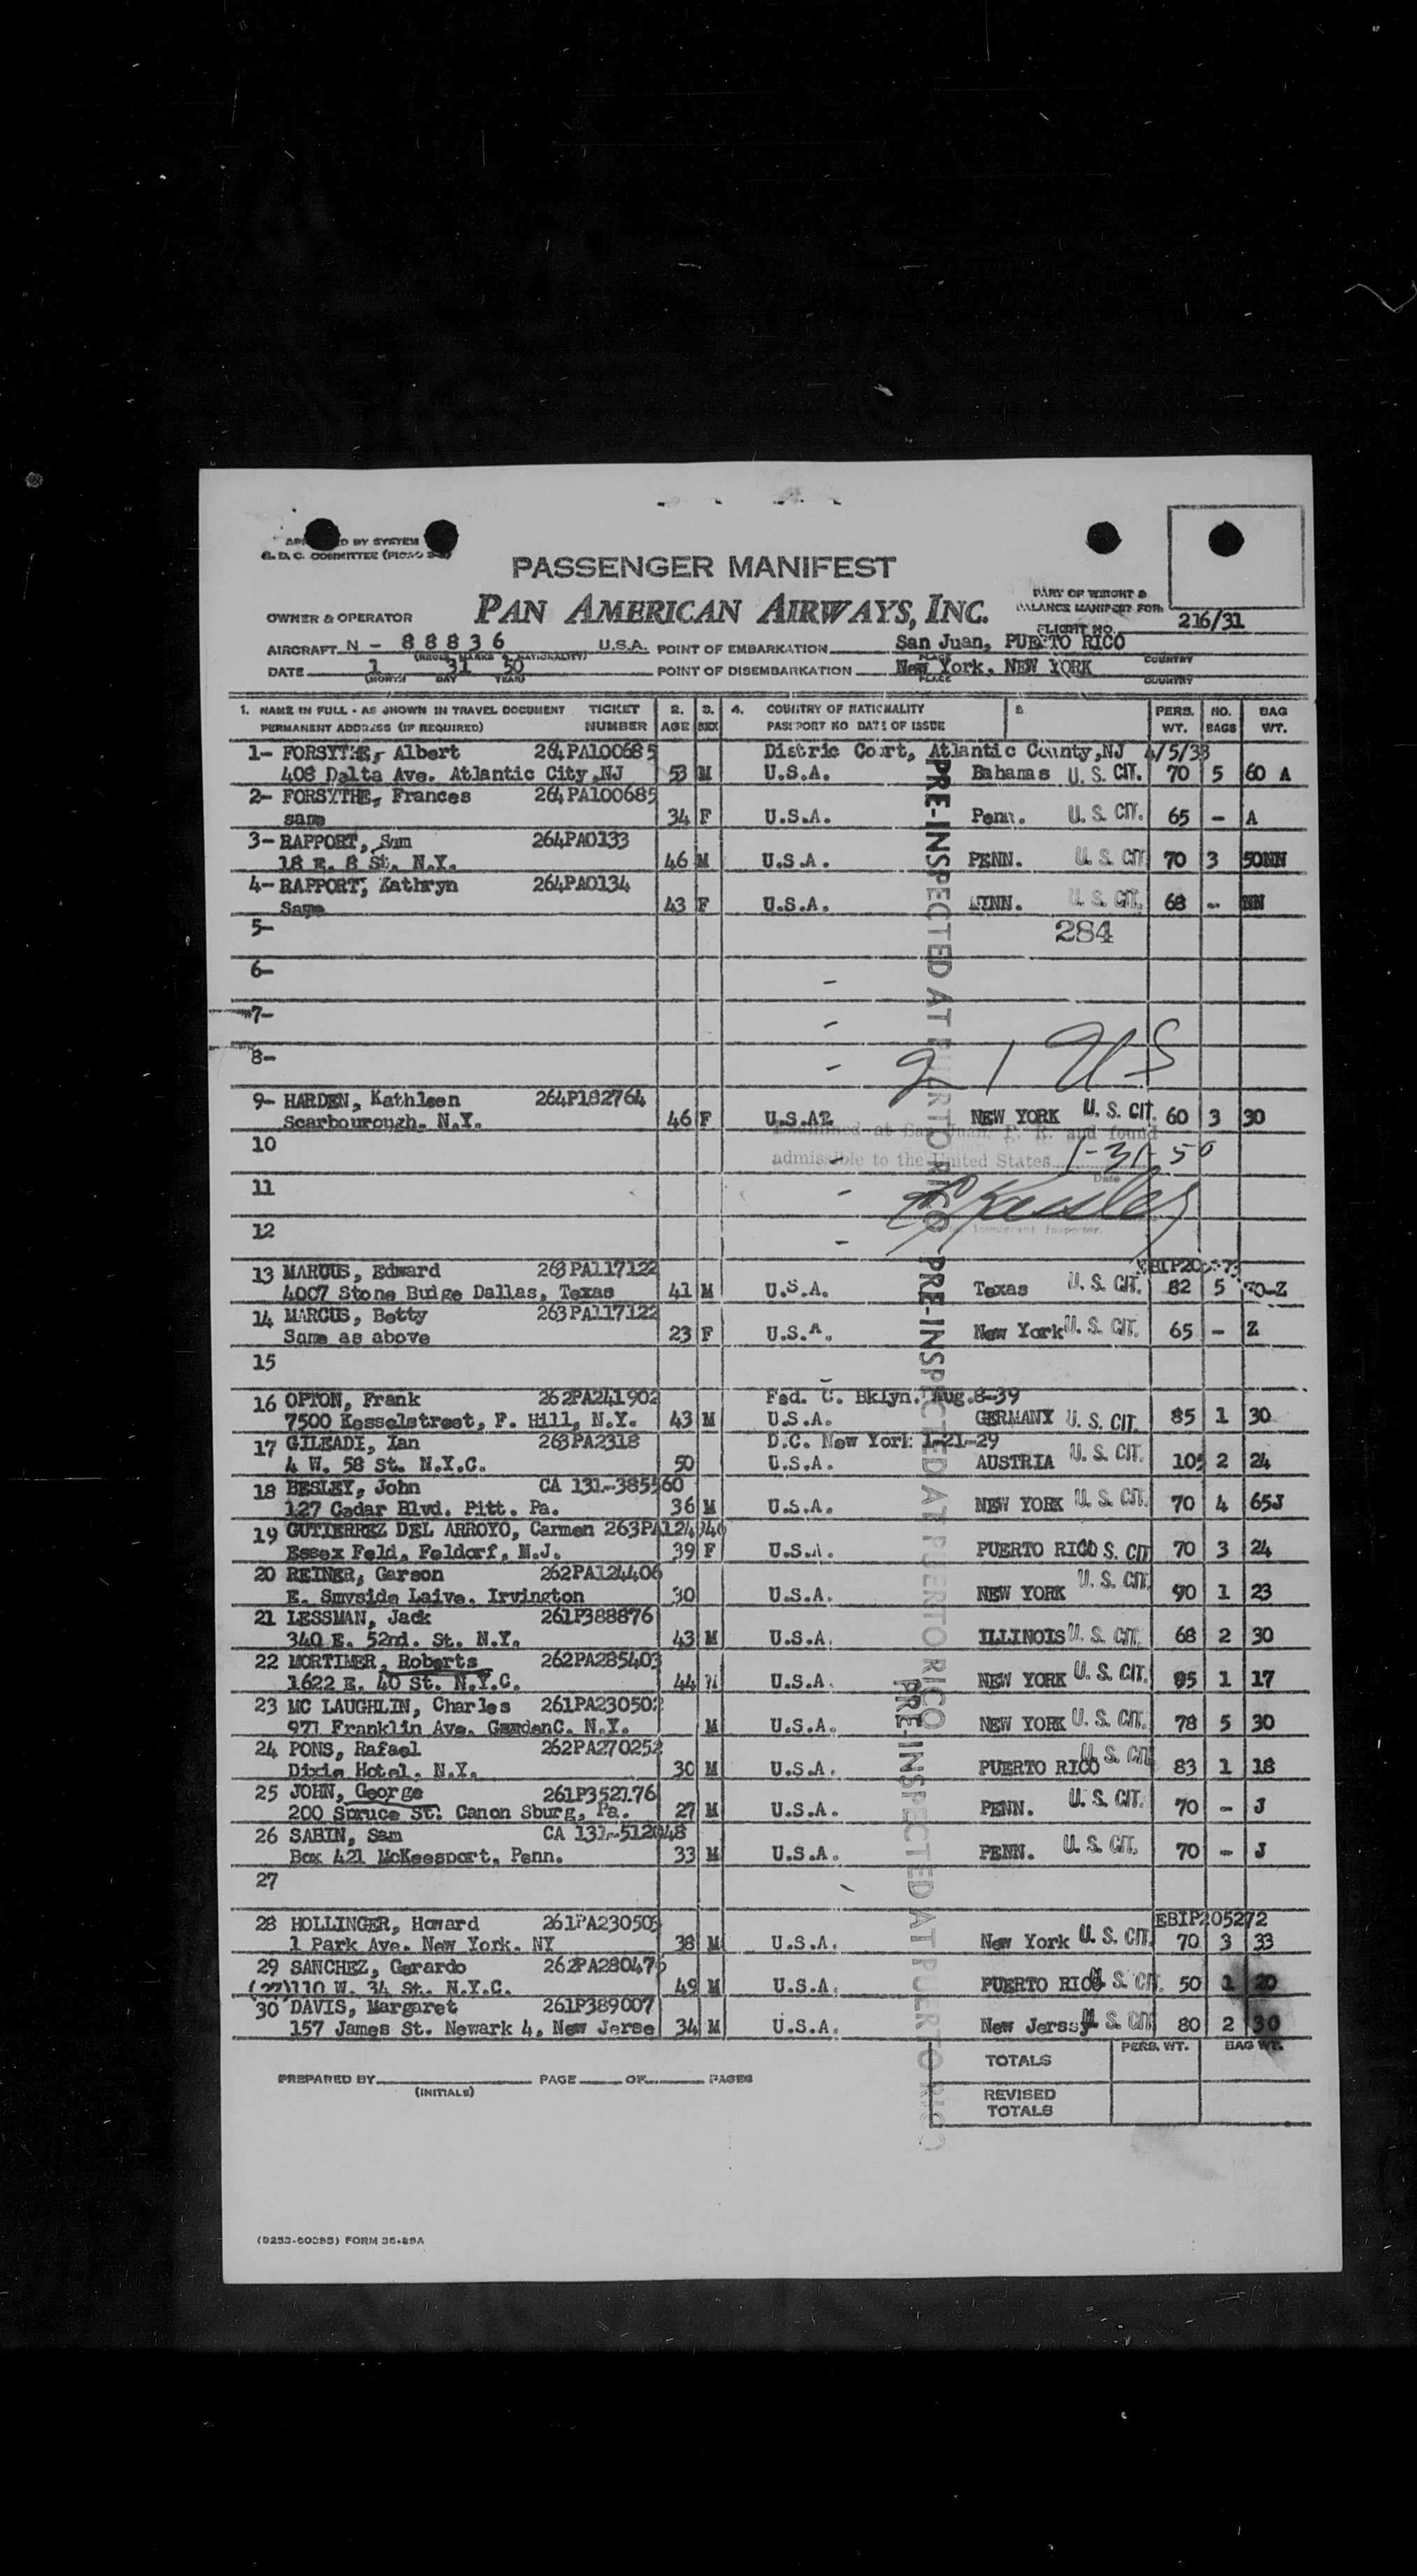 APPROVED BY SYSTEM
PASSENGER MANIFEST
PART OF WEIGHT &
BALANCE MANIFEST FOR:
OWNER & OPERATOR PAN AMERICAN AIRWAYS, INC.
FLIGHT NO. 216/31
AIRCRAFT N - 88836 U.S.A. POINT OF EMBARKATION San Juan, PUERTO RICO
(REGIS. MARKS & NATIONALITY) PLACE COUNTRY
DATE 1 31 50 POINT OF DISEMBARKATION New York, NEW YORK
(MONTH) DAY YEAR) PLACE COUNTRY
1. NAME IN FULL - AS SHOWN IN TRAVEL DOCUMENT TICKET 2. 3. 4. COUNTRY OF NATIONALITY 5 PERS. NO. BAG
PERMANENT ADDRESS (IF REQUIRED) NUMBER AGE SEX PASSPORT NO DATE OF ISSUE WT. BAGS WT.
1- FORSYTHE, Albert 264PA100685 Distric Court, Atlantic County,NJ 4/5/38
408 Dalta Ave. Atlantic City,NJ 53 M U.S.A. Bahamas U. S. CIT. 70 5 60 A
2- FORSYTHE, Frances 264PA100685
same 34 F U.S.A. Penn. U. S. CIT. 65 - A
3- RAPPORT, Sam 264PA0133
18 E. 8 St. N.Y. 46 M U.S.A. PENN. U. S. CIT 70 3 50NN
4- RAPPORT, Kathryn 264PA0134
Same 43 F U.S.A. U. S. CIT. 68 - NN
5- 284
6-
7-
8- 21 US
9- HARDEN, Kathleen 264P182764
Scarbourough. N.Y. 46 F U.S.A. NEW YORK U. S. CIT. 60 3 30
Examined at San Juan, P. R. and found
10 admissible to the United States 1-31-50
Date
11
12 Immigrant Inspector.
13 MARCUS, Edward 263PA117122
4007 Stone Budge Dallas, Texas 41 M U.S.A. Texas U. S. CIT. 82 5 70-Z
14 MARCUS, Betty 263PA117122
Same as above 23 F U.S.A. New York U. S. CIT. 65 - Z
15
16 OPTON, Frank 262PA241902 Fed. C. Bklyn. Aug.8-39
7500 Kesselstreet, F. Hill, N.Y. 43 M U.S.A. GERMANY U. S. CIT. 85 1 30
17 GILEADI, Ian 263PA2318 D.C. New York 1-21-29
4 W. 58 St. N.Y.C. 50 U.S.A. AUSTRIA U. S. CIT. 105 2 24
18 BESLEY, John CA 131-385560
127 Cedar Blvd. Pitt. Pa. 36 M U.S.A. NEW YORK U. S. CIT. 70 4 65J
19 GUTIERREZ DEL ARROYO, Carmen
Essex Feld, Feldorf, N.J. 39 F U.S.A. PUERTO RICO S. CIT 70 3 24
20 REINER, Garson 262PA124406
E. Smyside Laive. Irvington 30 U.S.A. NEW YORK U. S. CIT. 90 1 23
21 LESSMAN, Jack 261P388876
340 E. 52nd. St. N.Y. 43 M U.S.A. ILLINOIS U. S. CIT. 68 2 30
22 MORTIMER, Roberts 262PA285403
1622 E. 40 St. N.Y.C. 44 M U.S.A. NEW YORK U. S. CIT. 85 1 17
23 MC LAUGHLIN, Charles 261PA230502
971 Franklin Ave. GardenC. N.Y. M U.S.A. NEW YORK U. S. CIT. 78 5 30
24 PONS, Rafael 262PA270252
Dixie Hotel. N.Y. 30 M U.S.A. PUERTO RICO U. S. CIT 83 1 18
25 JOHN, George 261P352176
200 Spruce St. Canon Sburg, Pa. 27 M U.S.A. PENN. U. S. CIT. 70 - J
26 SABIN, Sam CA 131-512048
Box 421 McKeesport, Penn. 33 M U.S.A. PENN. U. S. CIT. 70 - J
27
28 HOLLINGER, Howard 261PA230503 EBIP205272
1 Park Ave. New York. NY 38 M U.S.A. New York U. S. CIT. 70 3 33
29 SANCHEZ, Gerardo 262PA280476
110 W. 34 St. N.Y.C. 49 M U.S.A. PUERTO RICO U. S. CIT. 50 1 20
30 DAVIS, Margaret 261P389007
157 James St. Newark 4, New Jerse 34 M U.S.A. New Jersey U. S. CIT 80 2 30
PRE-INSPECTED AT PUERTO RICO
PRE-INSPECTED AT PUERTO RICO
PRE-INSPECTED AT PUERTO RICO
TOTALS PERS. WT. BAG WT.
PREPARED BY PAGE OF PAGES
(INITIALS)
REVISED
TOTALS